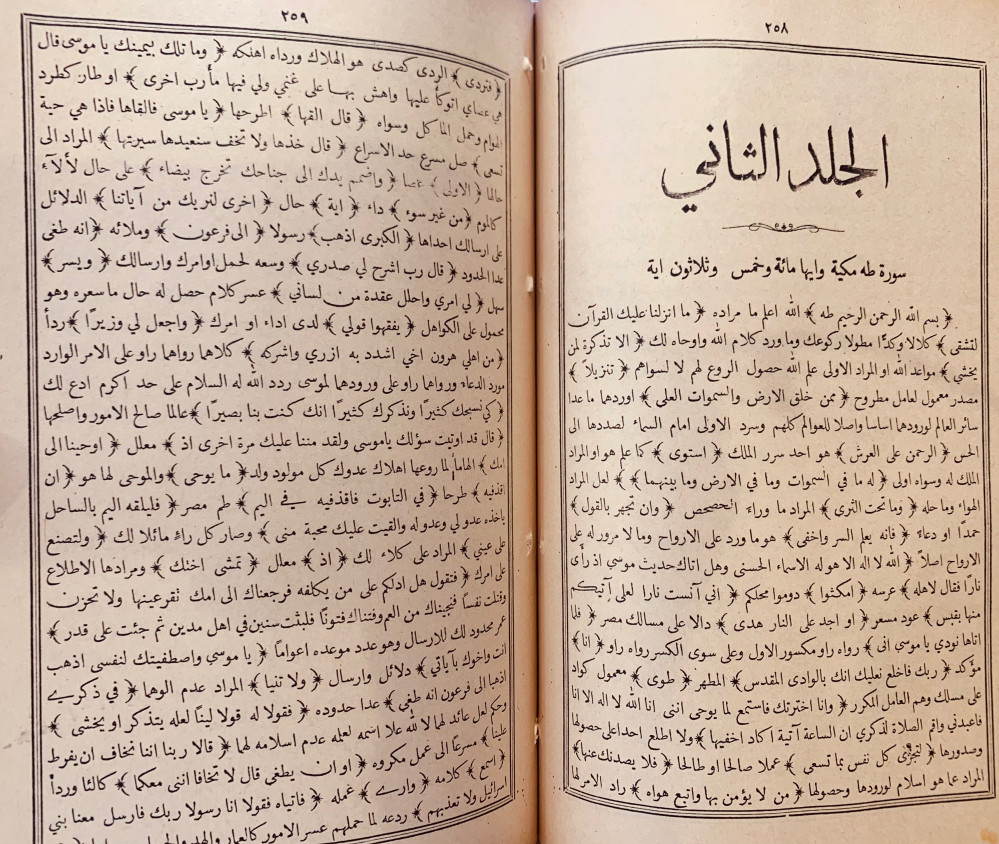 ٢٥٨
الجلد الثاني
سورة طه مكية وايها مائة وخمس وثلاثون اية
﴿ بسم الله الرحمن الرحيم طه ﴾ الله اعلم ما مراده ﴿ ما انزلنا عليك القرآن
لتشقى ﴾ كلالا وكدًّا مطولا ركوعك وما ورد كلام الله واوحاه لك ﴿ الا تذكرة لمن
يخشى ﴾ مواعد الله او المراد الاولى علم الله حصول الروع لهم لا لسواهم ﴿ تنزيلاً ﴾
مصدر معمول لعامل مطروح ﴿ ممن خلق الارض والسموات العلى ﴾ اوردهما ما عدا
سائر العالم لورودها اساسا واصلا للعوالم كلهم وسرد الاولى امام السماء لصددها الى
الحس ﴿ الرحمن على العرش ﴾ هو احد سرر الملك ﴿ استوى ﴾ كما علم هو او المراد
الملك له وسواه اولى ﴿ له ما في السموات وما في الارض وما بينهما ﴾ لعل المراد
الهواء وما حله ﴿ وما تحت الثرى ﴾ المراد ما وراء الحصحص ﴿ وان تجهر بالقول ﴾
حمدًا او دعاء ﴿ فانه يعلم السر واخفى ﴾ هو ما ورد على الارواح وما لا مرور له على
الارواح اصلاً ﴿ الله لا اله الا هو له الاسماء الحسنى وهل اتاك حديث موسى اذ رأى
نارًا فقال لاهله ﴾ عرسه ﴿ امكثوا ﴾ دوموا محلكم ﴿ اني آنست نارا لعلى آتيكم
منها بقبس ﴾ عود مسعر ﴿ او اجد على النار هدى ﴾ دالا على مسالك مصر ﴿ فلما
اتاها نودي يا موسى انى ﴾ رواه راو مكسور الاول وعلى سوى الكسر رواه راو ﴿ انا ﴾
مؤكد ﴿ ربك فاخلع نعليك انك بالوادى المقدس ﴾ المطهر ﴿ طوى ﴾ معمول كواد
على مسلك وهم العامل المكرر ﴿ وانا اخترتك فاستمع لما يوحى اننى انا الله لا اله الا انا
فاعبدني واقم الصلاة لذكري ان الساعة آتية اكاد اخفيها ﴾ ولا اطلع احدا على حصولها
وصدورها ﴿ لتجزى كل نفس بما تسعى ﴾ عملا صالحا او طالحا ﴿ فلا يصدنك عنها ﴾
المراد عما هو اسلام لورودها وحصولها ﴿ من لا يؤمن بها واتبع هواه ﴾ راد الامر لها
٢٥٩
﴿ فتردى ﴾ الردى كصدى هو الهلاك ورداه اهلكه ﴿ وما تلك بيمينك يا موسى قال
هي عصاي اتوكأ عليها واهش بها على غنمي ولي فيها مأرب اخرى ﴾ او طار كطرد
الهوام وحمل الماكل وسواه ﴿ قال القها ﴾ اطرحها ﴿ يا موسى فالقاها فاذا هي حية
تسعى ﴾ صل مسرع حد الاسراع ﴿ قال خذها ولا تخف سنعيدها سيرتها ﴾ المراد الى
حالها ﴿ الاولى ﴾ عصا ﴿ واضمم يدك الى جناحك تخرج بيضاء ﴾ على حال لألآء
﴿ من غير سوء ﴾ داء ﴿ اية ﴾ حال ﴿ اخرى لنريك من آياتنا ﴾ الدلائل
على ارسالك احداها ﴿ الكبرى اذهب ﴾ رسولا ﴿ الى فرعون ﴾ وملائه ﴿ انه طغى ﴾
عدا الحدود ﴿ قال رب اشرح لي صدري ﴾ وسعه لحمل اوامرك وارسالك ﴿ ويسر ﴾
سهل ﴿ لي امري واحلل عقدة من لساني ﴾ عسر كلام حصل له حال ما سعره وهو
محمول على الكواهل ﴿ يفقهوا قولي ﴾ لدى اداء او امرك ﴿ واجعل لي وزيرًا ﴾ ردأ
﴿ من اهلي هرون اخي اشدد به ازري واشركه ﴾ كلاهما رواها راو على الامر الوارد
مورد الدعاء ورواها راو على ورودها لموسى ردد الله له السلام على حد اكرم ادع لك
﴿ كي نسبحك كثيرًا ونذكرك كثيرًا انك كنت بنا بصيرًا ﴾ عالما صالح الامور واصلحها
﴿ قال قد اوتيت سؤلك ياموسى ولقد مننا عليك مرة اخرى اذ ﴾ معلل ﴿ اوحينا الى
امك ﴾ الهاماً لما روعها اهلاك عدوك كل مولود ولد ﴿ ما يوحى ﴾ والموحى لها هو ﴿ ان
اقذفيه ﴾ طرحا ﴿ في التابوت فاقذفيه في اليم ﴾ طم مصر ﴿ فليلقه اليم بالساحل
ياخذه عدو لي وعدو له والقيت عليك محبة منى ﴾ وصار كل راءٍ مائلا لك ﴿ ولتصنع
على عيني ﴾ المراد على كلاء لك ﴿ اذ ﴾ معلل ﴿ تمشى اختك ﴾ ومرادها الاطلاع
على امرك ﴿ فتقول هل ادلكم على من يكلفه فرجعناك الى امك تقر عينها ولا تحزن
وقتلت نفساً فنجيناك من الغم وفتناك فتونًا فلبثت سنين في اهل مدين ثم جئت على قدر ﴾
عمر محدود لك للارسال وهو عدد موعده اعوامًا ﴿ يا موسى واصطنعتك لنفسى اذهب
انت واخوك بآياتي ﴾ دلائل وارسال ﴿ ولا تنيا ﴾ المراد عدم الوها ﴿ في ذكري
اذهبا الى فرعون انه طغى ﴾ عدا حدوده ﴿ فقولا له قولا لينًا لعله يتذكر او يخشى ﴾
وحكم لعل عائد لهما لا لله علا اسمه لعله عدم اسلامه لهما ﴿ قالا ربنا اننا نخاف ان يفرط
علينا ﴾ مسرعًا الى عمل مكروه ﴿ او ان يطغى قال لا تخافا اننى معكما ﴾ كالئا وردأ
﴿ اسمع ﴾ كلامه ﴿ وارى ﴾ عمله ﴿ فاتياه فقولا انا رسولا ربك فارسل معنا بني
اسرائيل ولا تعذبهم ﴾ ردعه لما حملهم عسر الامور كالعمار والهد